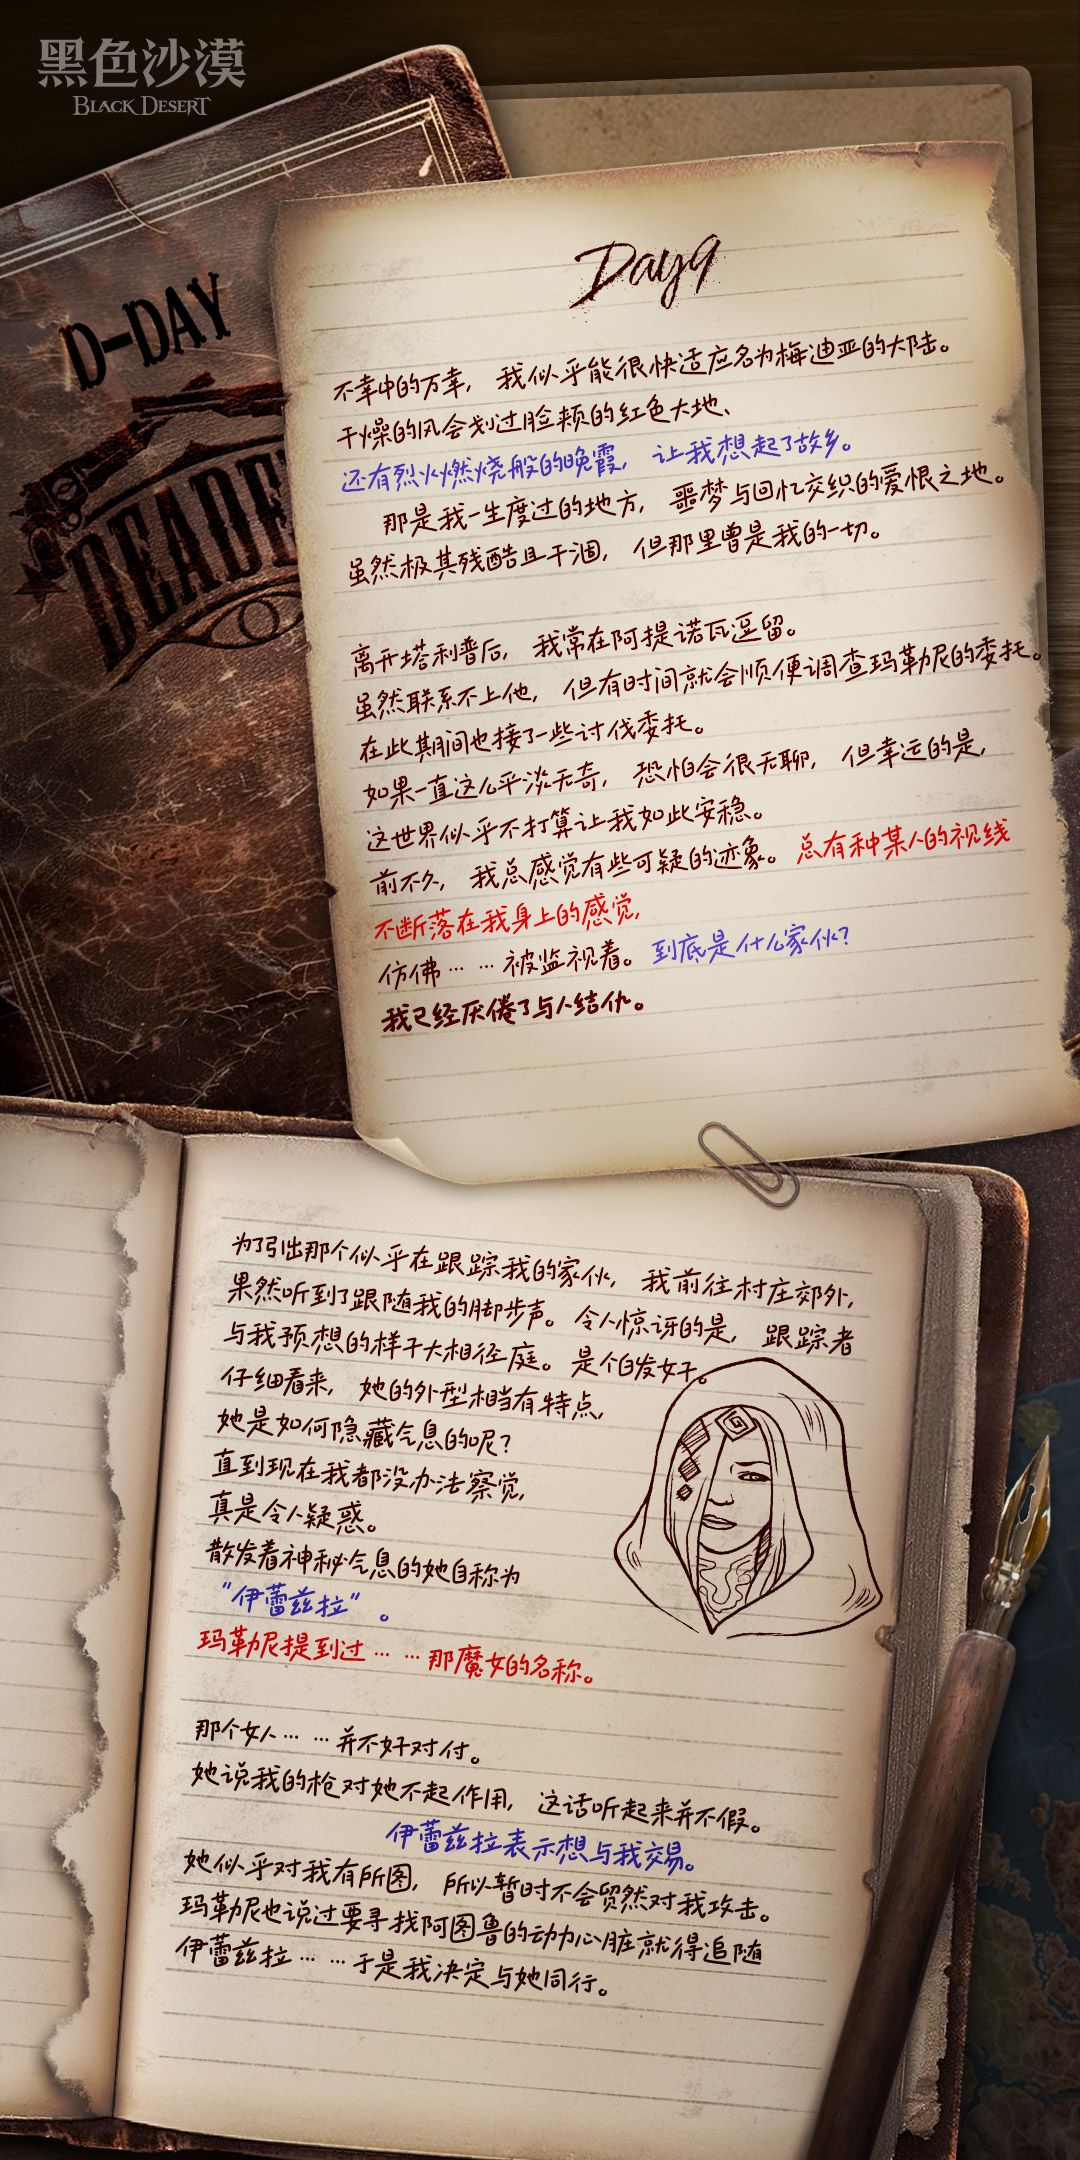 黑色沙漠
BLACK DESERT
D-DAY
Day9
不幸中的万幸，我似乎能很快适应名为梅迪亚的大陆。
干燥的风会划过脸颊的红色大地、
还有烈火燃烧般的晚霞，让我想起了故乡。
那是我一生度过的地方，噩梦与回忆交织的爱恨之地。
虽然极其残酷且干涸，但那里曾是我的一切。
离开塔利普后，我常在阿提诺瓦逗留。
虽然联系不上他，但有时间就会顺便调查玛勒尼的委托。
在此期间也接了一些讨伐委托。
如果一直这么平淡无奇，恐怕会很无聊，但幸运的是，
这世界似乎不打算让我如此安稳。
前不久，我总感觉有些可疑的迹象。总有种某人的视线
不断落在我身上的感觉，
仿佛……被监视着。到底是什么家伙？
我已经厌倦了与人结仇。
为了引出那个似乎在跟踪我的家伙，我前往村庄郊外，
果然听到了跟随我的脚步声。令人惊讶的是，跟踪者
与我预想的样子大相径庭。是个白发女子。
仔细看来，她的外型相当有特点，
她是如何隐藏气息的呢？
直到现在我都没办法察觉，
真是令人疑惑。
散发着神秘气息的她自称为
“伊蕾兹拉”。
玛勒尼提到过……那魔女的名称。
那个女人……并不好对付。
她说我的枪对她不起作用，这话听起来并不假。
伊蕾兹拉表示想与我交易。
她似乎对我有所图，所以暂时不会贸然对我攻击。
玛勒尼也说过要寻找阿图鲁的动力心脏就得追随
伊蕾兹拉……于是我决定与她同行。